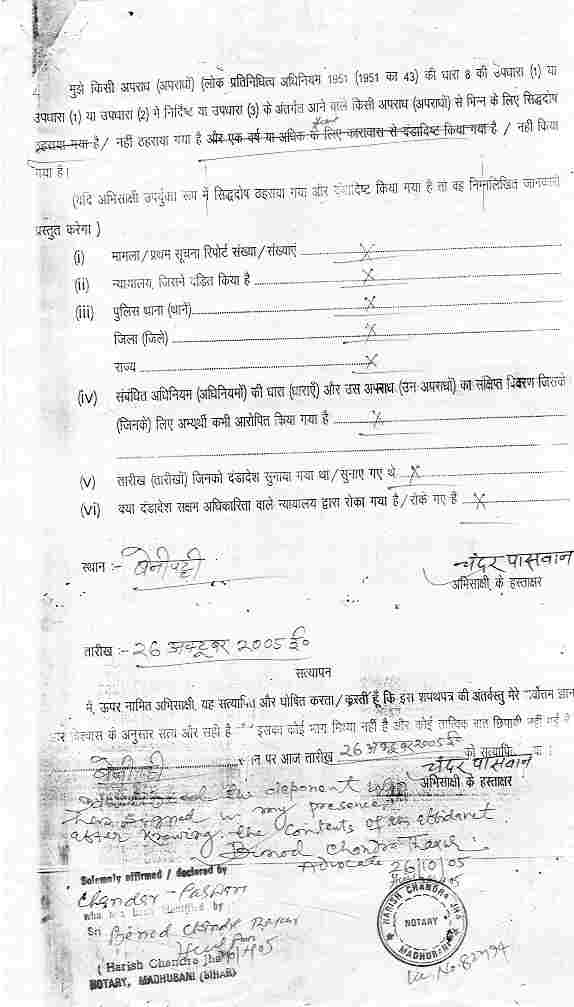 मुझे किसी अपराध (अपराधों) (लोक प्रतिनिधित्व अधिनियम 1951 (1951 का 43) की धारा 8 की उपधारा (1) या
उपधारा (1) या उपधारा (2) में निर्दिष्ट या उपधारा (3) के अंतर्गत आने वाले किसी अपराध (अपराधों) से भिन्न के लिए सिद्धदोष
ठहराया गया है / नहीं ठहराया गया है और एक वर्ष या अधिक के लिए कारावास से दंडादिष्ट किया गया है / नहीं किया
गया है।
(यदि अभिसाक्षी उपर्युक्त रूप में सिद्धदोष ठहराया गया और दंडादिष्ट किया गया है तो वह निम्नलिखित जानकारी
प्रस्तुत करेगा)
(i) मामला/प्रथम सूचना रिपोर्ट संख्या/संख्याएं X
(ii) न्यायालय, जिसने दंडित किया है X
(iii) पुलिस थाना (थाने) X
जिला (जिले) X
राज्य X
(iv) संबंधित अधिनियम (अधिनियमों) की धारा (धाराएँ) और उस अपराध (उन अपराधों) का संक्षिप्त विवरण जिसके
(जिनके) लिए अभ्यर्थी कभी आरोपित किया गया है X
(v) तारीख (तारीखों) जिनको दंडादेश सुनाया गया था/सुनाए गए थे X
(vi) क्या दंडादेश सक्षम अधिकारिता वाले न्यायालय द्वारा रोका गया है/रोके गए हैं X
स्थान :- बेनीपट्टी
चंदर पासवान
अभिसाक्षी के हस्ताक्षर
तारीख :- 26 अक्टूबर 2005 ई०
सत्यापन
मैं, ऊपर नामित अभिसाक्षी, यह सत्यापित और घोषित करता/करती हूँ कि इस शपथपत्र की अंतर्वस्तु मेरे सर्वोत्तम ज्ञान
और विश्वास के अनुसार सत्य और सही है इसका कोई भाग मिथ्या नहीं है और कोई तात्विक बात छिपाई नहीं गई है
बेनीपट्टी स्थान पर आज तारीख 26 अक्टूबर 2005 ई० को सत्यापित
चंदर पासवान
अभिसाक्षी के हस्ताक्षर
the deponent
has signed in my presence
after knowing the contents of affidavit
Binod Chandra Thakur
Advocate 26/10/05
Solemnly affirmed / declared by
Chander Paswan
who has been identified by
Sri Binod Chandra Thakur
(Harish Chandra Jha)
NOTARY, MADHUBANI (BIHAR)
HARISH CHANDRA JHA
NOTARY
MADHUBANI